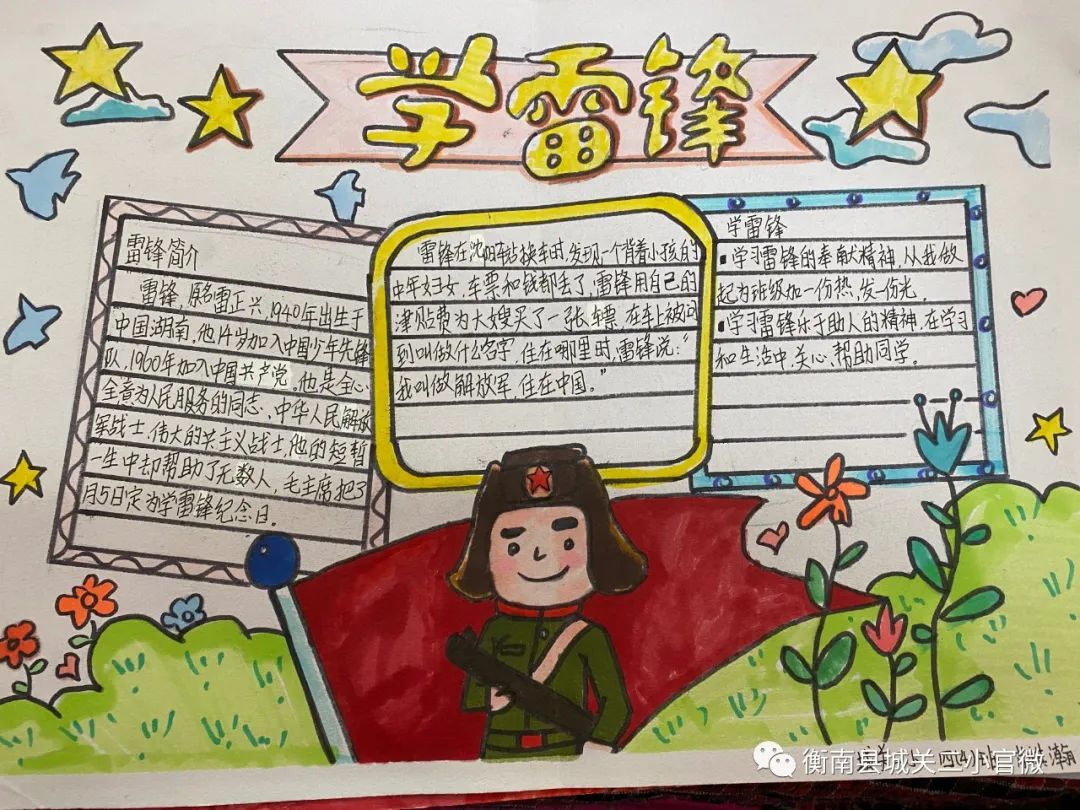 学雷锋
雷锋简介
雷锋,原名雷正兴,1940年出生于
中国湖南,他14岁加入中国少年先锋
队,1960年加入中国共产党。他是全心
全意为人民服务的同志,中华人民解放
军战士,伟大的共主义战士,他的短暂
一生中却帮助了无数人,毛主席把3
月5日定为学雷锋纪念日。
雷锋在沈阳车站换车时,发现一个背着小孩的
中年妇女,车票和钱都丢了,雷锋用自己的
津贴费为大嫂买了一张车票,在车上被问
到叫做什么名字,住在哪里时,雷锋说:“
我叫做解放军,住在中国。”
学雷锋
▪学习雷锋的奉献精神,从我做
起为班级加一份热,发一份光。
▪学习雷锋乐于助人的精神,在学习
和生活中,关心、帮助同学。
四(4)班 瀚
衡南县城关二小官微